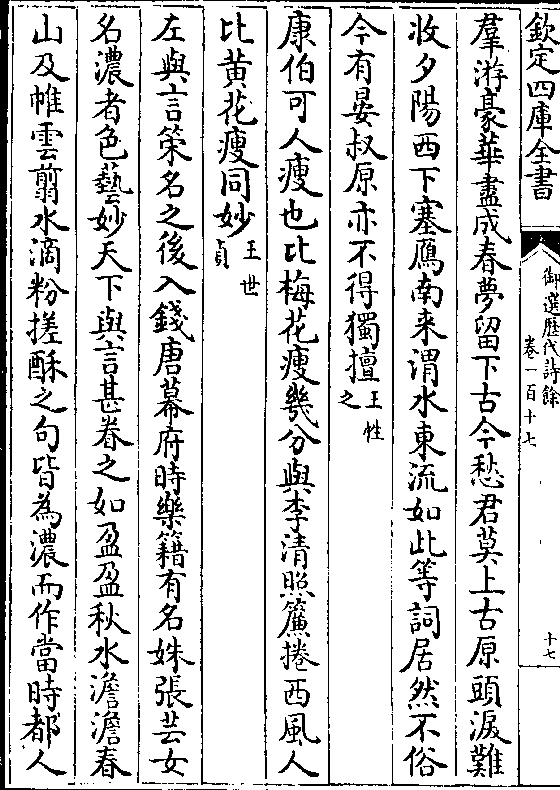 欽定四庫全書
御選歷代詩餘
卷一百十七
十七
羣游豪華盡成春夢留下古今愁君莫上古原頭淚難
收夕陽西下塞鴈南来渭水東流如此等詞居然不俗
今有晏叔原亦不得獨擅王牲之
康伯可人瘦也比梅花瘦幾分與李清照簾捲西風人
比黄花瘦同妙王世貞
左與言策名之後入錢唐幕府時樂籍有名姝張芸女
名濃者色藝妙天下與言甚眷之如盈盈秋水澹澹春
山及帷雲翦水滴粉搓酥之句皆為濃而作當時都人